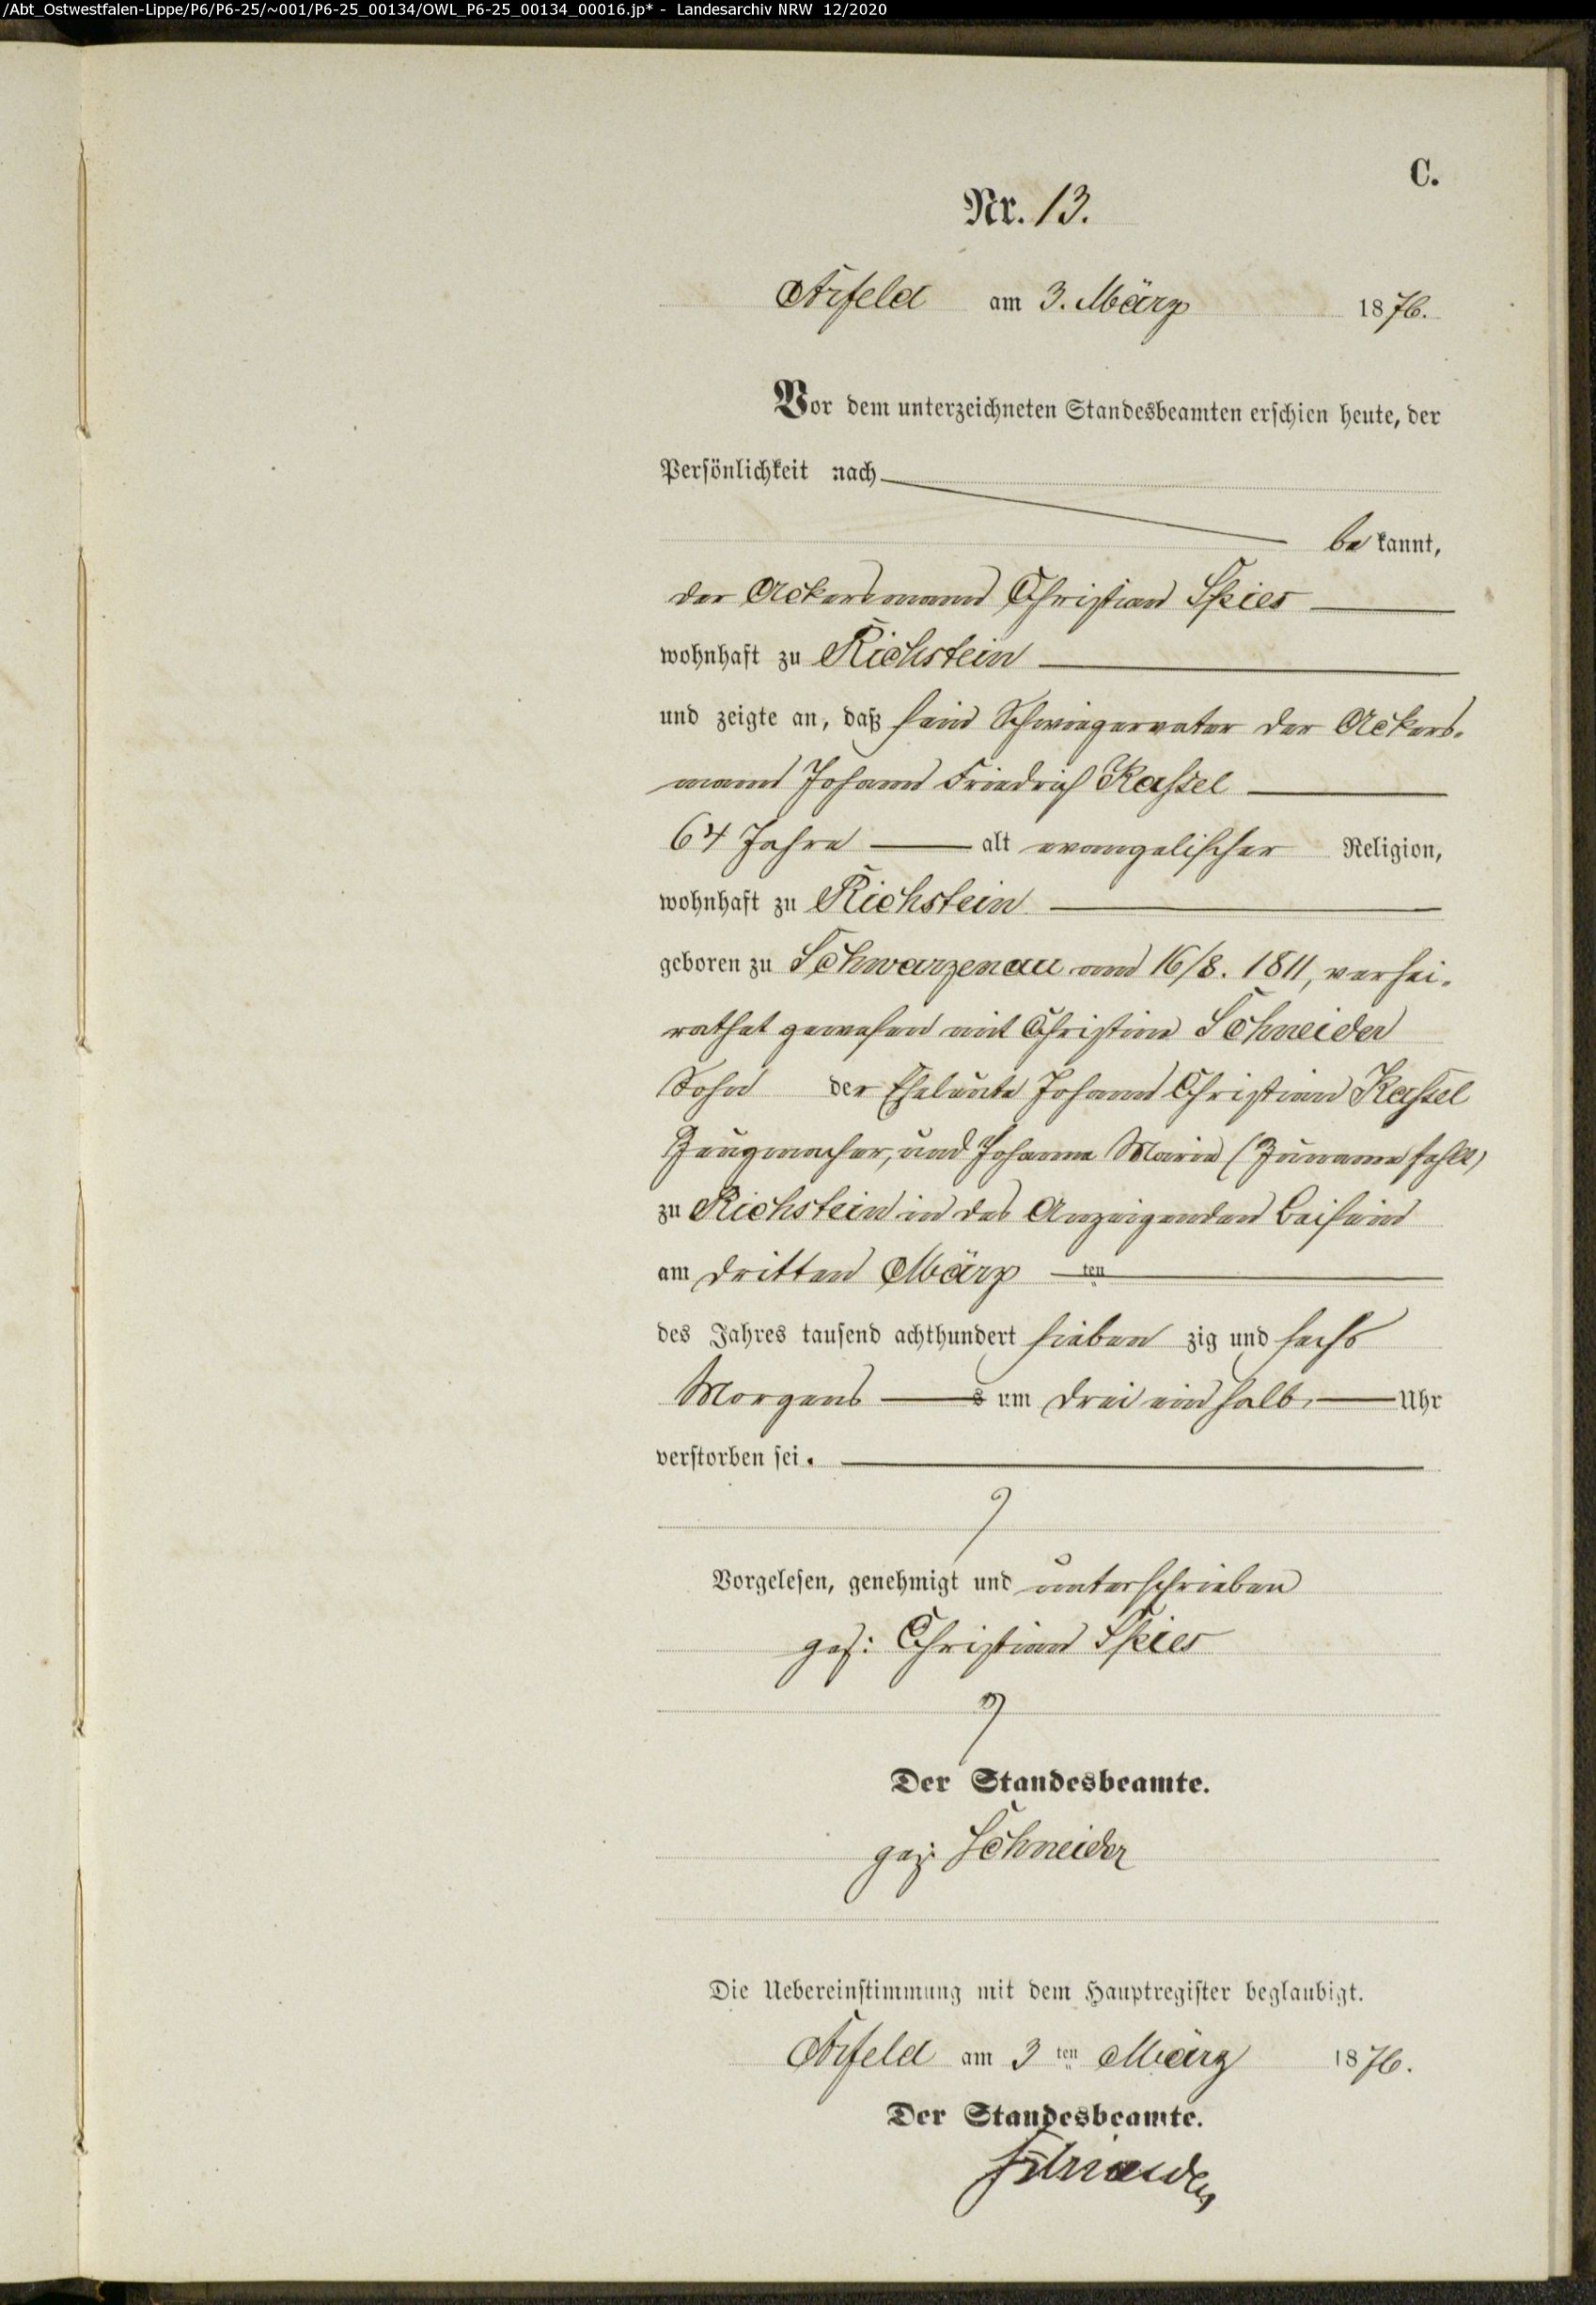 /Abt_Ostwestfalen-Lippe/P6/P6-25/~001/P6-25_00134/OWL_P6-25_00134_00016.jp* - Landesarchiv NRW 12/2020
C.
Nr. 13.
Arfeld am 3. März 1876.
Vor dem unterzeichneten Standesbeamten erschien heute, der
Persönlichkeit nach
be kannt,
der Ackersmann Christian Spies
wohnhaft zu Richstein
und zeigte an, daß sein Schwiegervater der Ackers-
mann Johann Friedrich Kassel
64 Jahre alt evangelischer Religion,
wohnhaft zu Richstein
geboren zu Schwarzenau am 16/8. 1811, verhei-
rathet gewesen mit Christine Schneider
Sohn der Eheleute Johann Christian Kassel
Zeugmacher, und Johanna Maria (Zuname fehlt)
zu Richstein in des Anzeigenden Beisein
am dritten März ten
des Jahres tausend achthundert sieben zig und sechs
Morgens s um drei ein halb Uhr
verstorben sei.
Vorgelesen, genehmigt und unterschrieben
gez: Christian Spies
Der Standesbeamte.
gez. Schneider
Die Uebereinstimmung mit dem Hauptregister beglaubigt.
Arfeld am 3 ten März 1876.
Der Standesbeamte.
Schneider